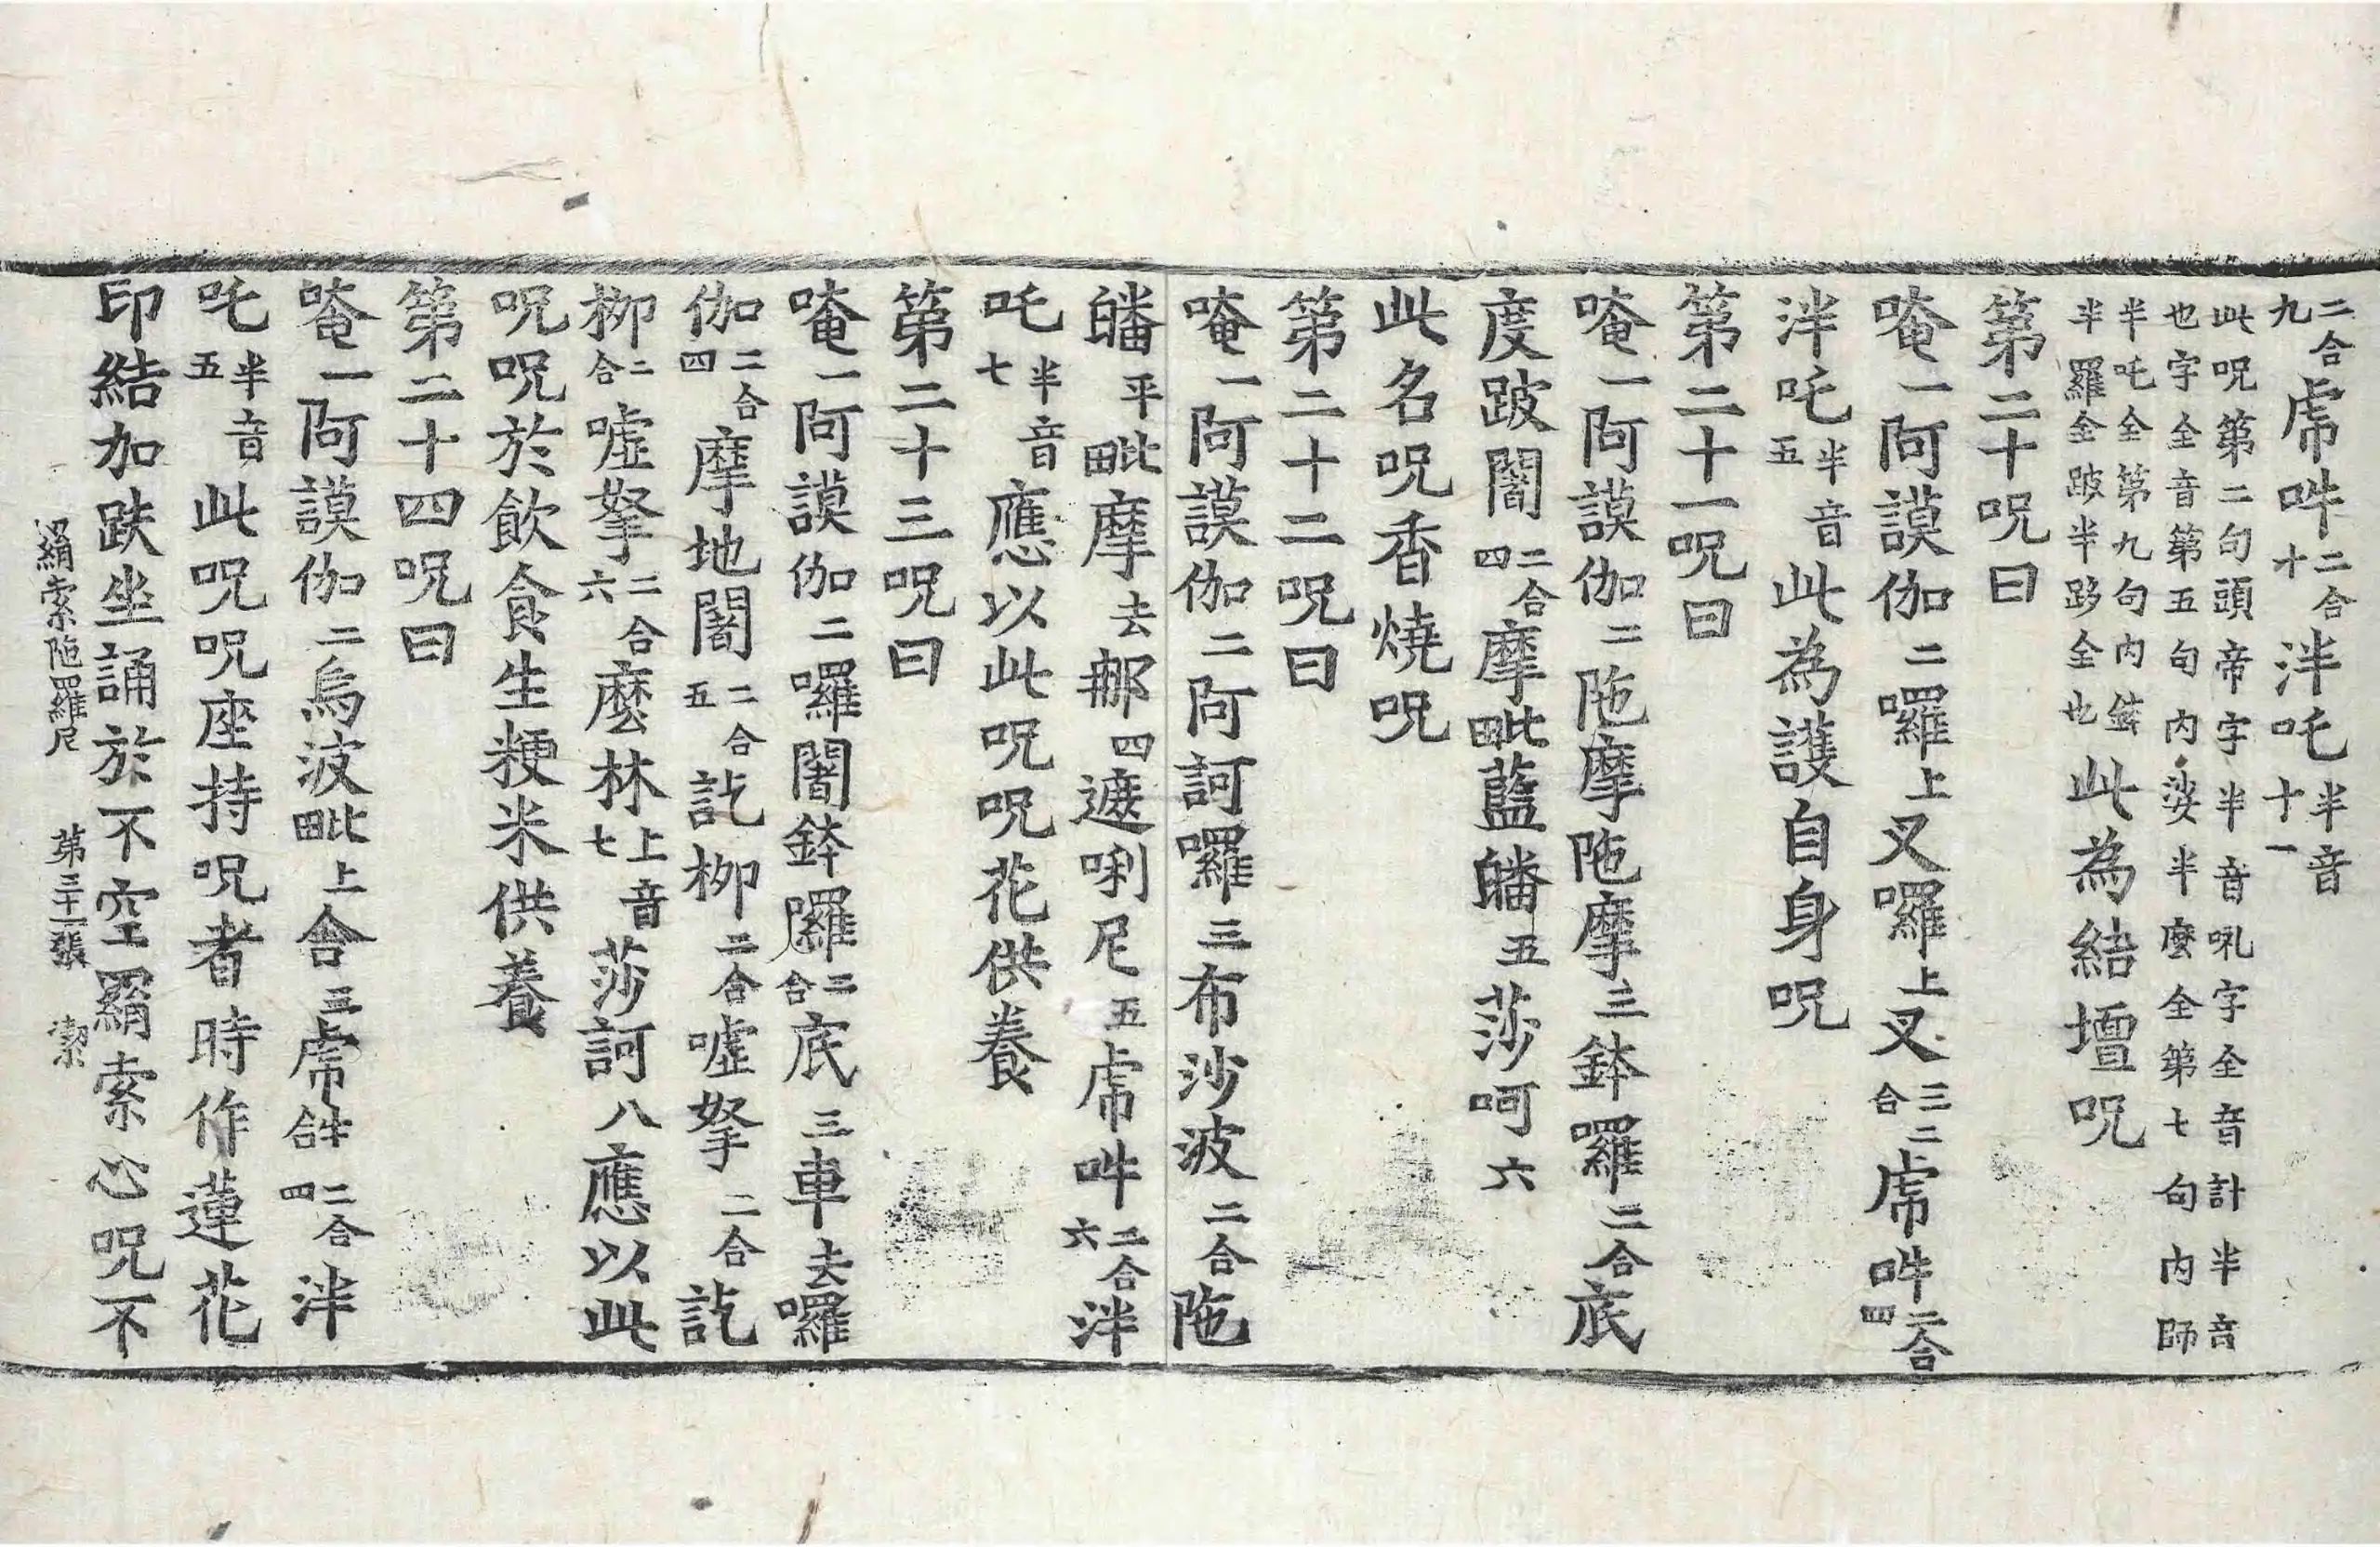 二合九虎吽二合十泮吒半音十一
此呪第二句頭帝字半音吼字全音計半音
也字全音第五句內娑半麼全第七句內師
半吒全第九句內
半羅全跛半跢全也此為結壇呪
第二十呪曰
唵一阿謨伽二囉上叉囉上叉二合三虎吽二合四
泮吒半音五此為護自身呪
第二十一呪曰
唵一阿謨伽二陁摩陁摩三鉢羅二合底
度跛闍二合四摩毗藍皤五莎呵六
此名呪香燒呪
第二十二呪曰
唵一阿謨伽二阿訶囉三布沙波二合陁
皤平毗摩去那四遮唎尼五虎吽二合六泮
吒半音七應以此呪呪花供養
第二十三呪曰
唵一阿謨伽二囉闍鉢囉二合底三車去囉
伽二合四摩地闍二合五訖柳二合噓拏二合訖
柳二合噓拏二合六麼林上音七莎訶八應以此
呪呪於飲食生粳米供養
第二十四呪曰
唵一阿謨伽二烏波毗上舍三虎吽合二合四泮
吒半音五此呪呪座持呪者時作蓮花
印結加趺坐誦於不空羂索心呪不
羂索陁羅尼 第三十一張 潔